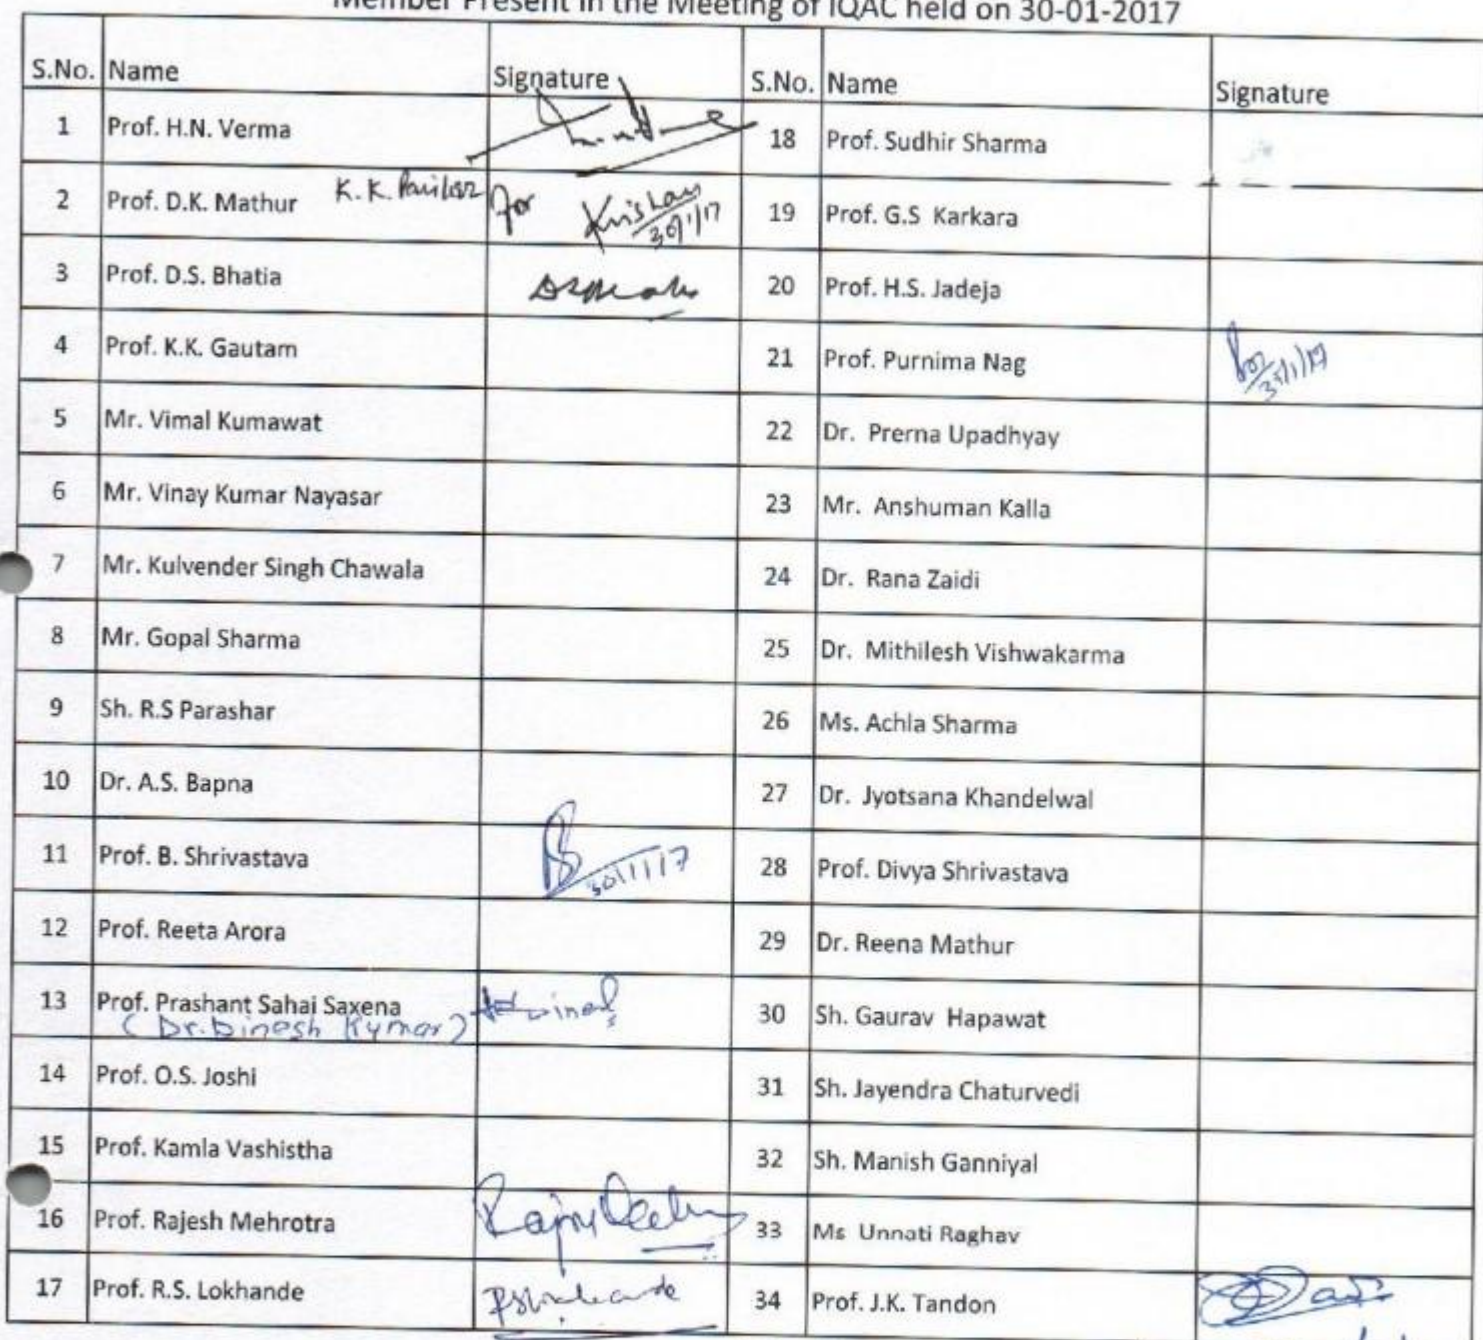 Member Present in the Meeting of IQAC held on 30-01-2017
S.No. Name Signature S.No. Name Signature
1 Prof. H.N. Verma 18 Prof. Sudhir Sharma
2 Prof. D.K. Mathur K.K. for Krishan 30/1/17 19 Prof. G.S Karkara
3 Prof. D.S. Bhatia 20 Prof. H.S. Jadeja
4 Prof. K.K. Gautam 21 Prof. Purnima Nag
5 Mr. Vimal Kumawat 22 Dr. Prerna Upadhyay
6 Mr. Vinay Kumar Nayasar 23 Mr. Anshuman Kalla
7 Mr. Kulvender Singh Chawala 24 Dr. Rana Zaidi
8 Mr. Gopal Sharma 25 Dr. Mithilesh Vishwakarma
9 Sh. R.S Parashar 26 Ms. Achla Sharma
10 Dr. A.S. Bapna 27 Dr. Jyotsana Khandelwal
11 Prof. B. Shrivastava 30/1/17 28 Prof. Divya Shrivastava
12 Prof. Reeta Arora 29 Dr. Reena Mathur
13 Prof. Prashant Sahai Saxena 30 Sh. Gaurav Hapawat
(Dr. Dinesh Kumar)
14 Prof. O.S. Joshi 31 Sh. Jayendra Chaturvedi
15 Prof. Kamla Vashistha 32 Sh. Manish Ganniyal
16 Prof. Rajesh Mehrotra 33 Ms Unnati Raghav
17 Prof. R.S. Lokhande 34 Prof. J.K. Tandon